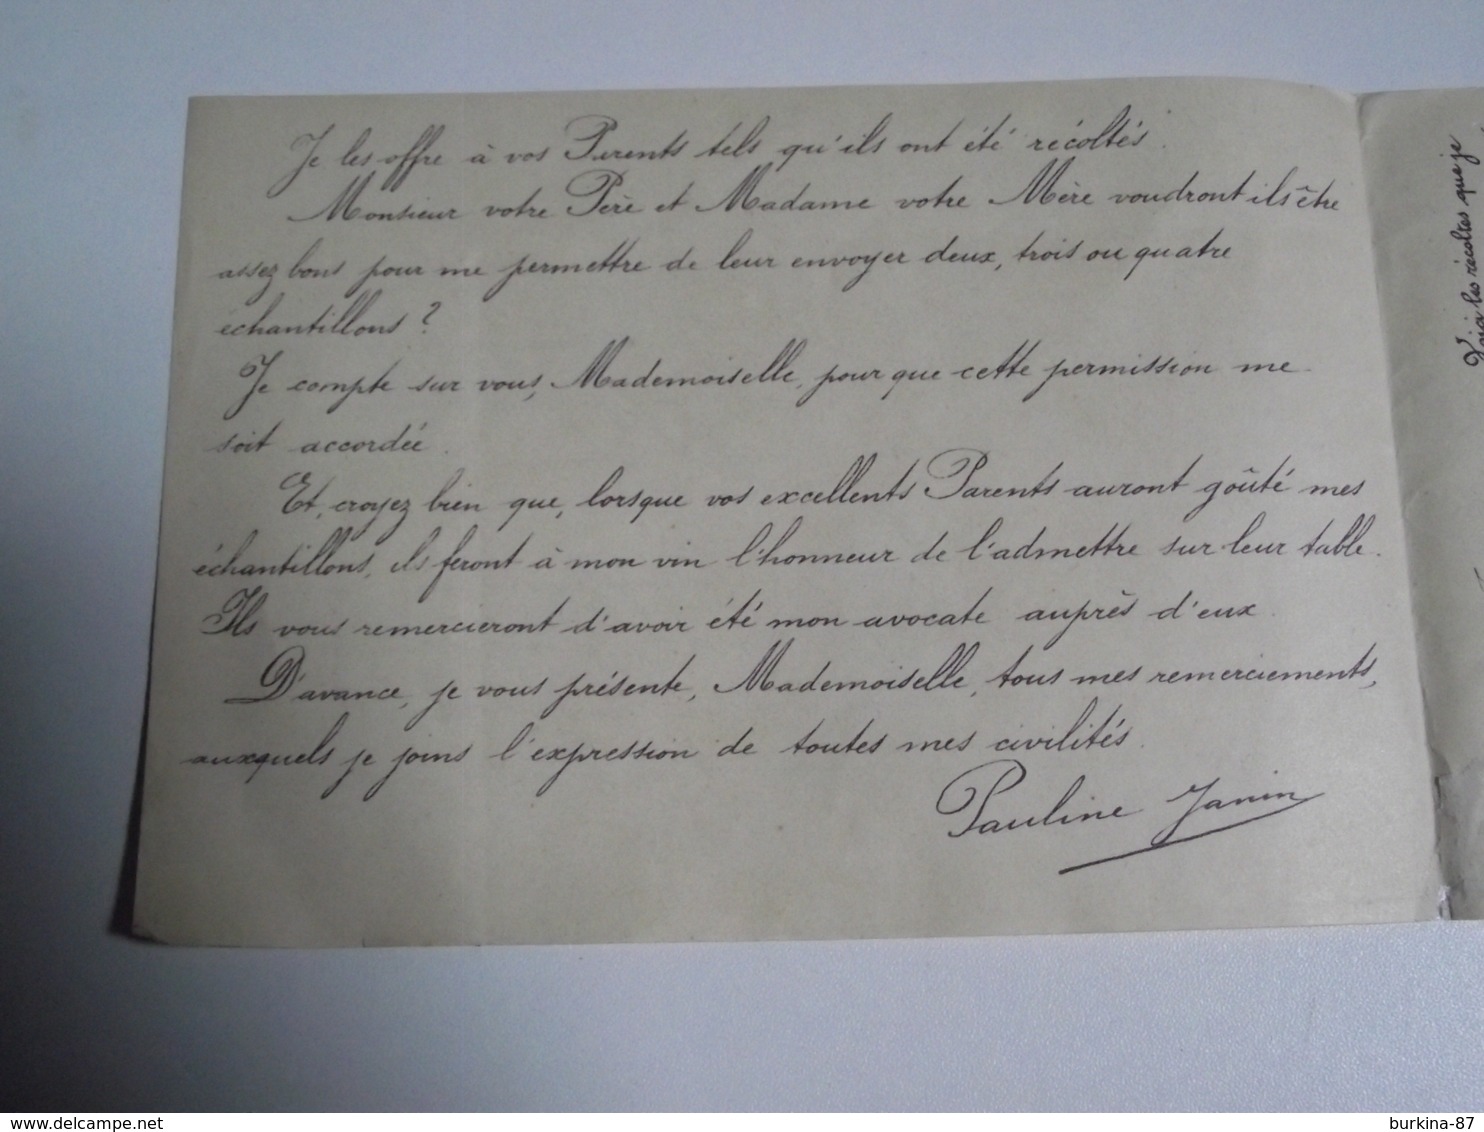 Je les offre à vos Parents tels qu'ils ont été récoltés.
Monsieur votre Père et Madame votre Mère voudront ils être
assez bons pour me permettre de leur envoyer deux, trois ou quatre
échantillons ?
Je compte sur vous, Mademoiselle, pour que cette permission me
soit accordée.
Et, croyez bien que, lorsque vos excellents Parents auront goûté mes
échantillons, ils feront à mon vin l'honneur de l'admettre sur leur table.
Ils vous remercieront d'avoir été mon avocate auprès d'eux.
D'avance, je vous présente, Mademoiselle, tous mes remerciements,
auxquels je joins l'expression de toutes mes civilités.
Pauline Janin
Voici les récoltes que je
burkina-87